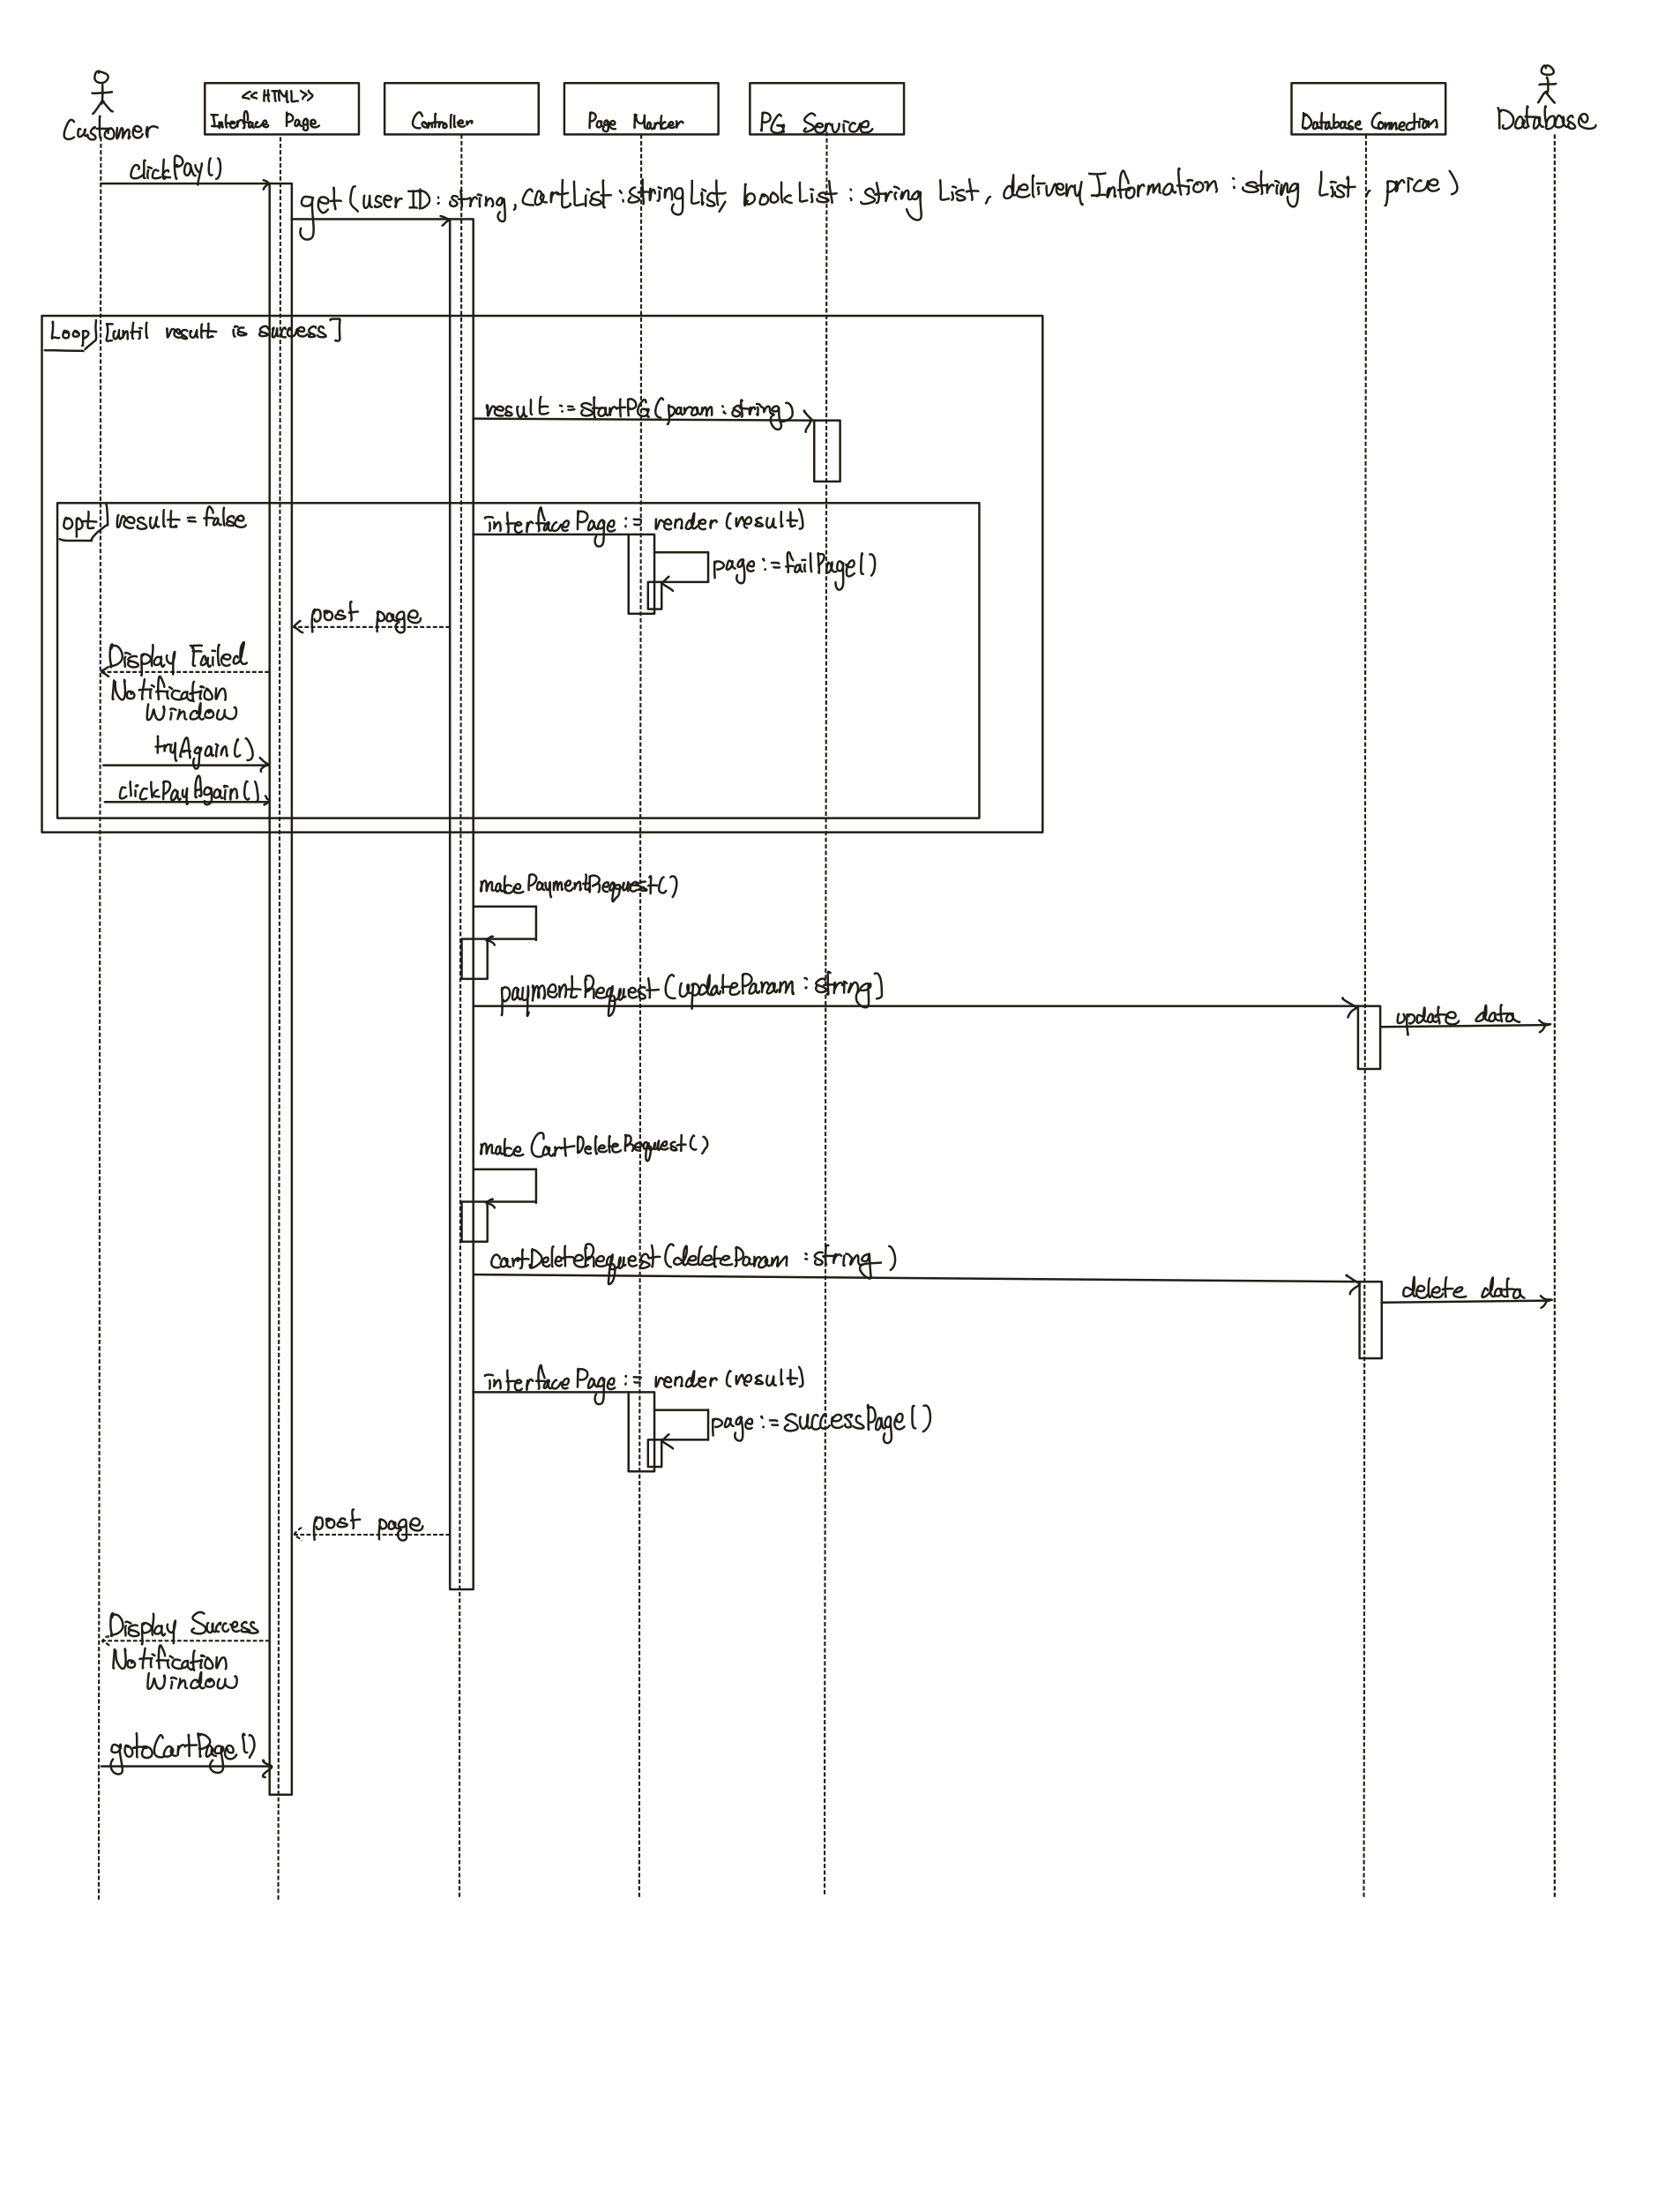 Customer
<< HTML >>
Interface Page
Controller
Page Marker
PG Service
Database Connection
Database
clickPay()
get(userID : string, CartList : string List, bookList : string List, deliveryInformation : string List, price)
Loop [until result is success]
result := startPG(param : string)
opt result = false
interfacePage := render(result)
page := failPage()
post page
Display Failed
Notification
Window
tryAgain()
clickPayAgain()
makePaymentRequest()
paymentRequest(updateParam : string)
update data
makeCartDeleteRequest()
cartDeleteRequest(deleteParam : string)
delete data
interfacePage := render(result)
page := successPage()
post page
Display Success
Notification
Window
gotoCartPage()